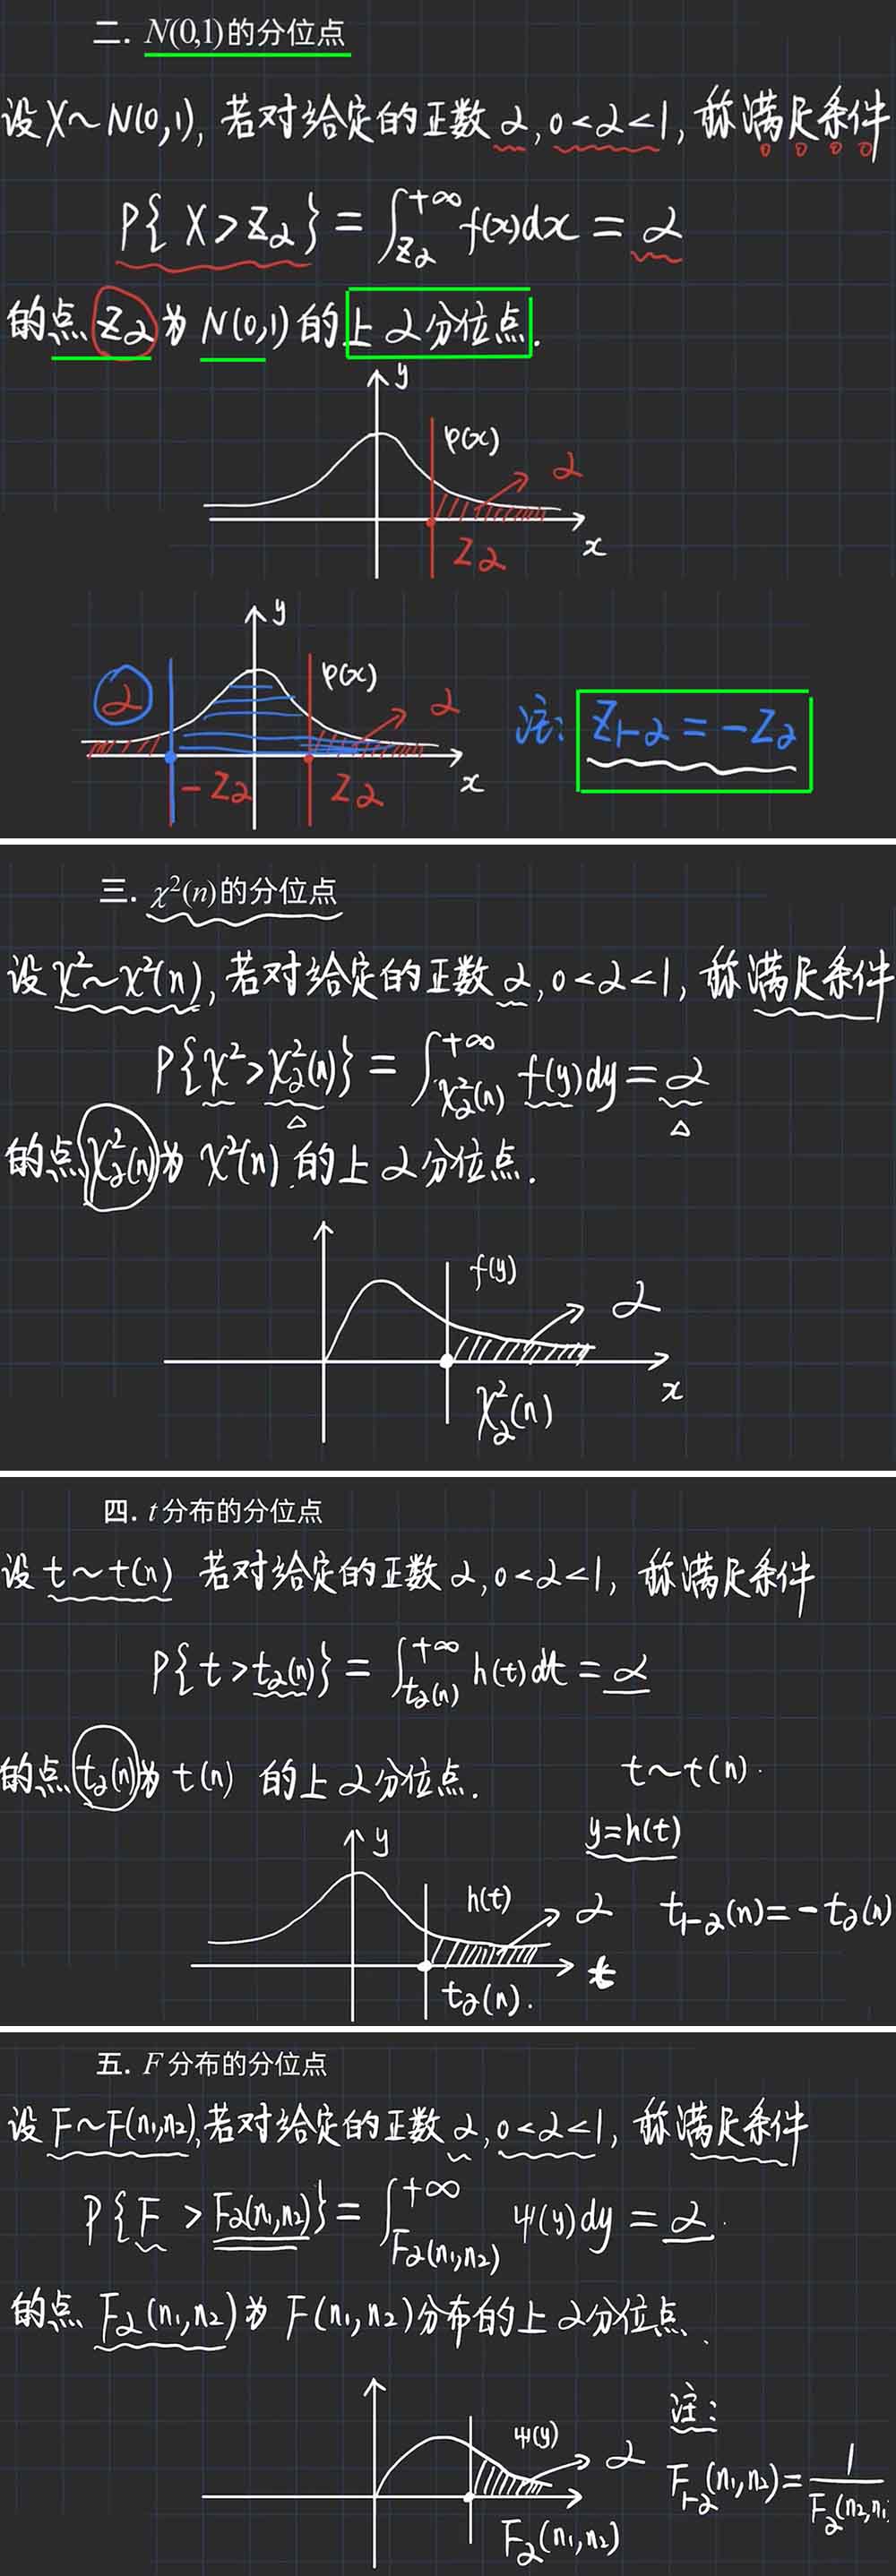 二. N(0,1)的分位点
设X~N(0,1), 若对给定的正数 α, 0<α<1, 称满足条件
P{X>Zα}=∫_{Zα}^{+∞} f(x)dx=α
的点 Zα 为 N(0,1) 的上α分位点.
y
φ(x)
α
Zα
x
y
φ(x)
α
α
-Zα
Zα
x
注: Z1-α=-Zα
三. χ²(n)的分位点
设χ²~χ²(n), 若对给定的正数 α, 0<α<1, 称满足条件
P{χ²>χ²α(n)}=∫_{χ²α(n)}^{+∞} f(y)dy=α
的点 χ²α(n) 为 χ²(n) 的上α分位点.
f(y)
α
χ²α(n)
x
四. t分布的分位点
设 t~t(n) 若对给定的正数 α, 0<α<1, 称满足条件
P{t>tα(n)}=∫_{tα(n)}^{+∞} h(t)dt=α
的点 tα(n) 为 t(n) 的上α分位点.
t~t(n).
y=h(t)
y
h(t)
α
t1-α(n)=-tα(n)
t
tα(n).
五. F分布的分位点
设 F~F(n₁,n₂), 若对给定的正数 α, 0<α<1, 称满足条件
P{F>Fα(n₁,n₂)}=∫_{Fα(n₁,n₂)}^{+∞} ψ(y)dy=α.
的点 Fα(n₁,n₂) 为 F(n₁,n₂)分布的上α分位点.
注:
ψ(y)
α
F1-α(n₁,n₂)=1/Fα(n₂,n₁
Fα(n₁,n₂)